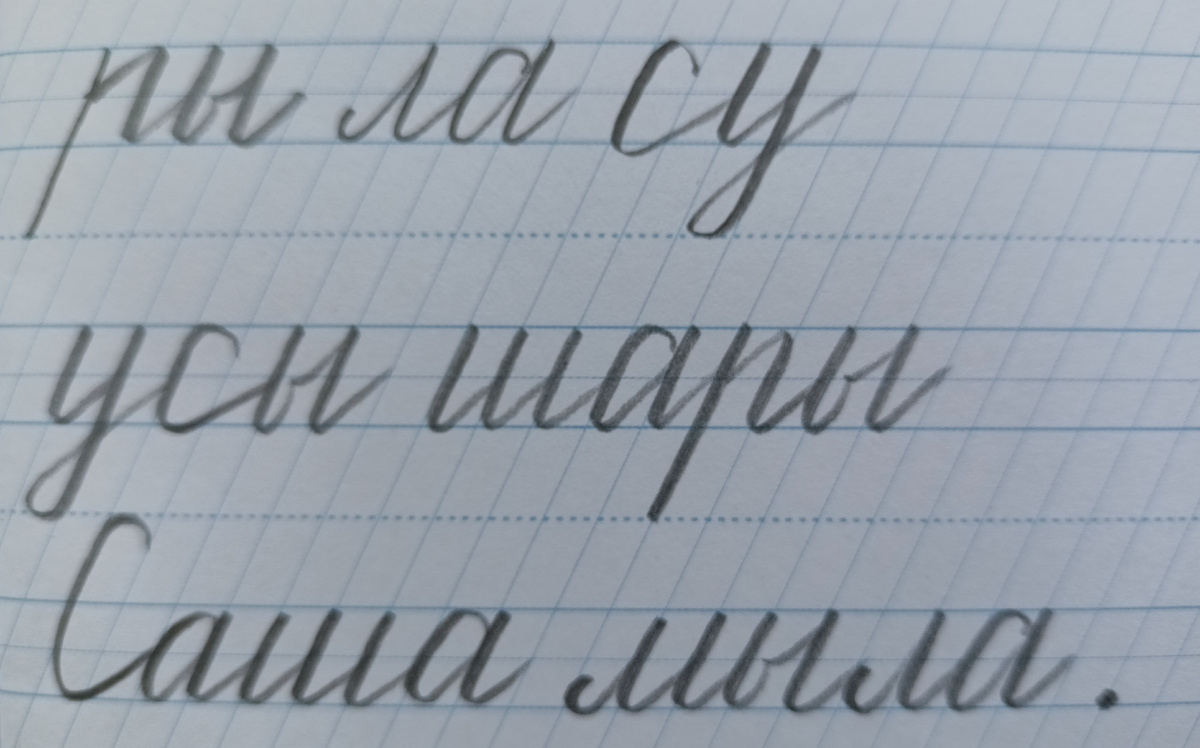 ры ла су
усы шары
Саша мыла.